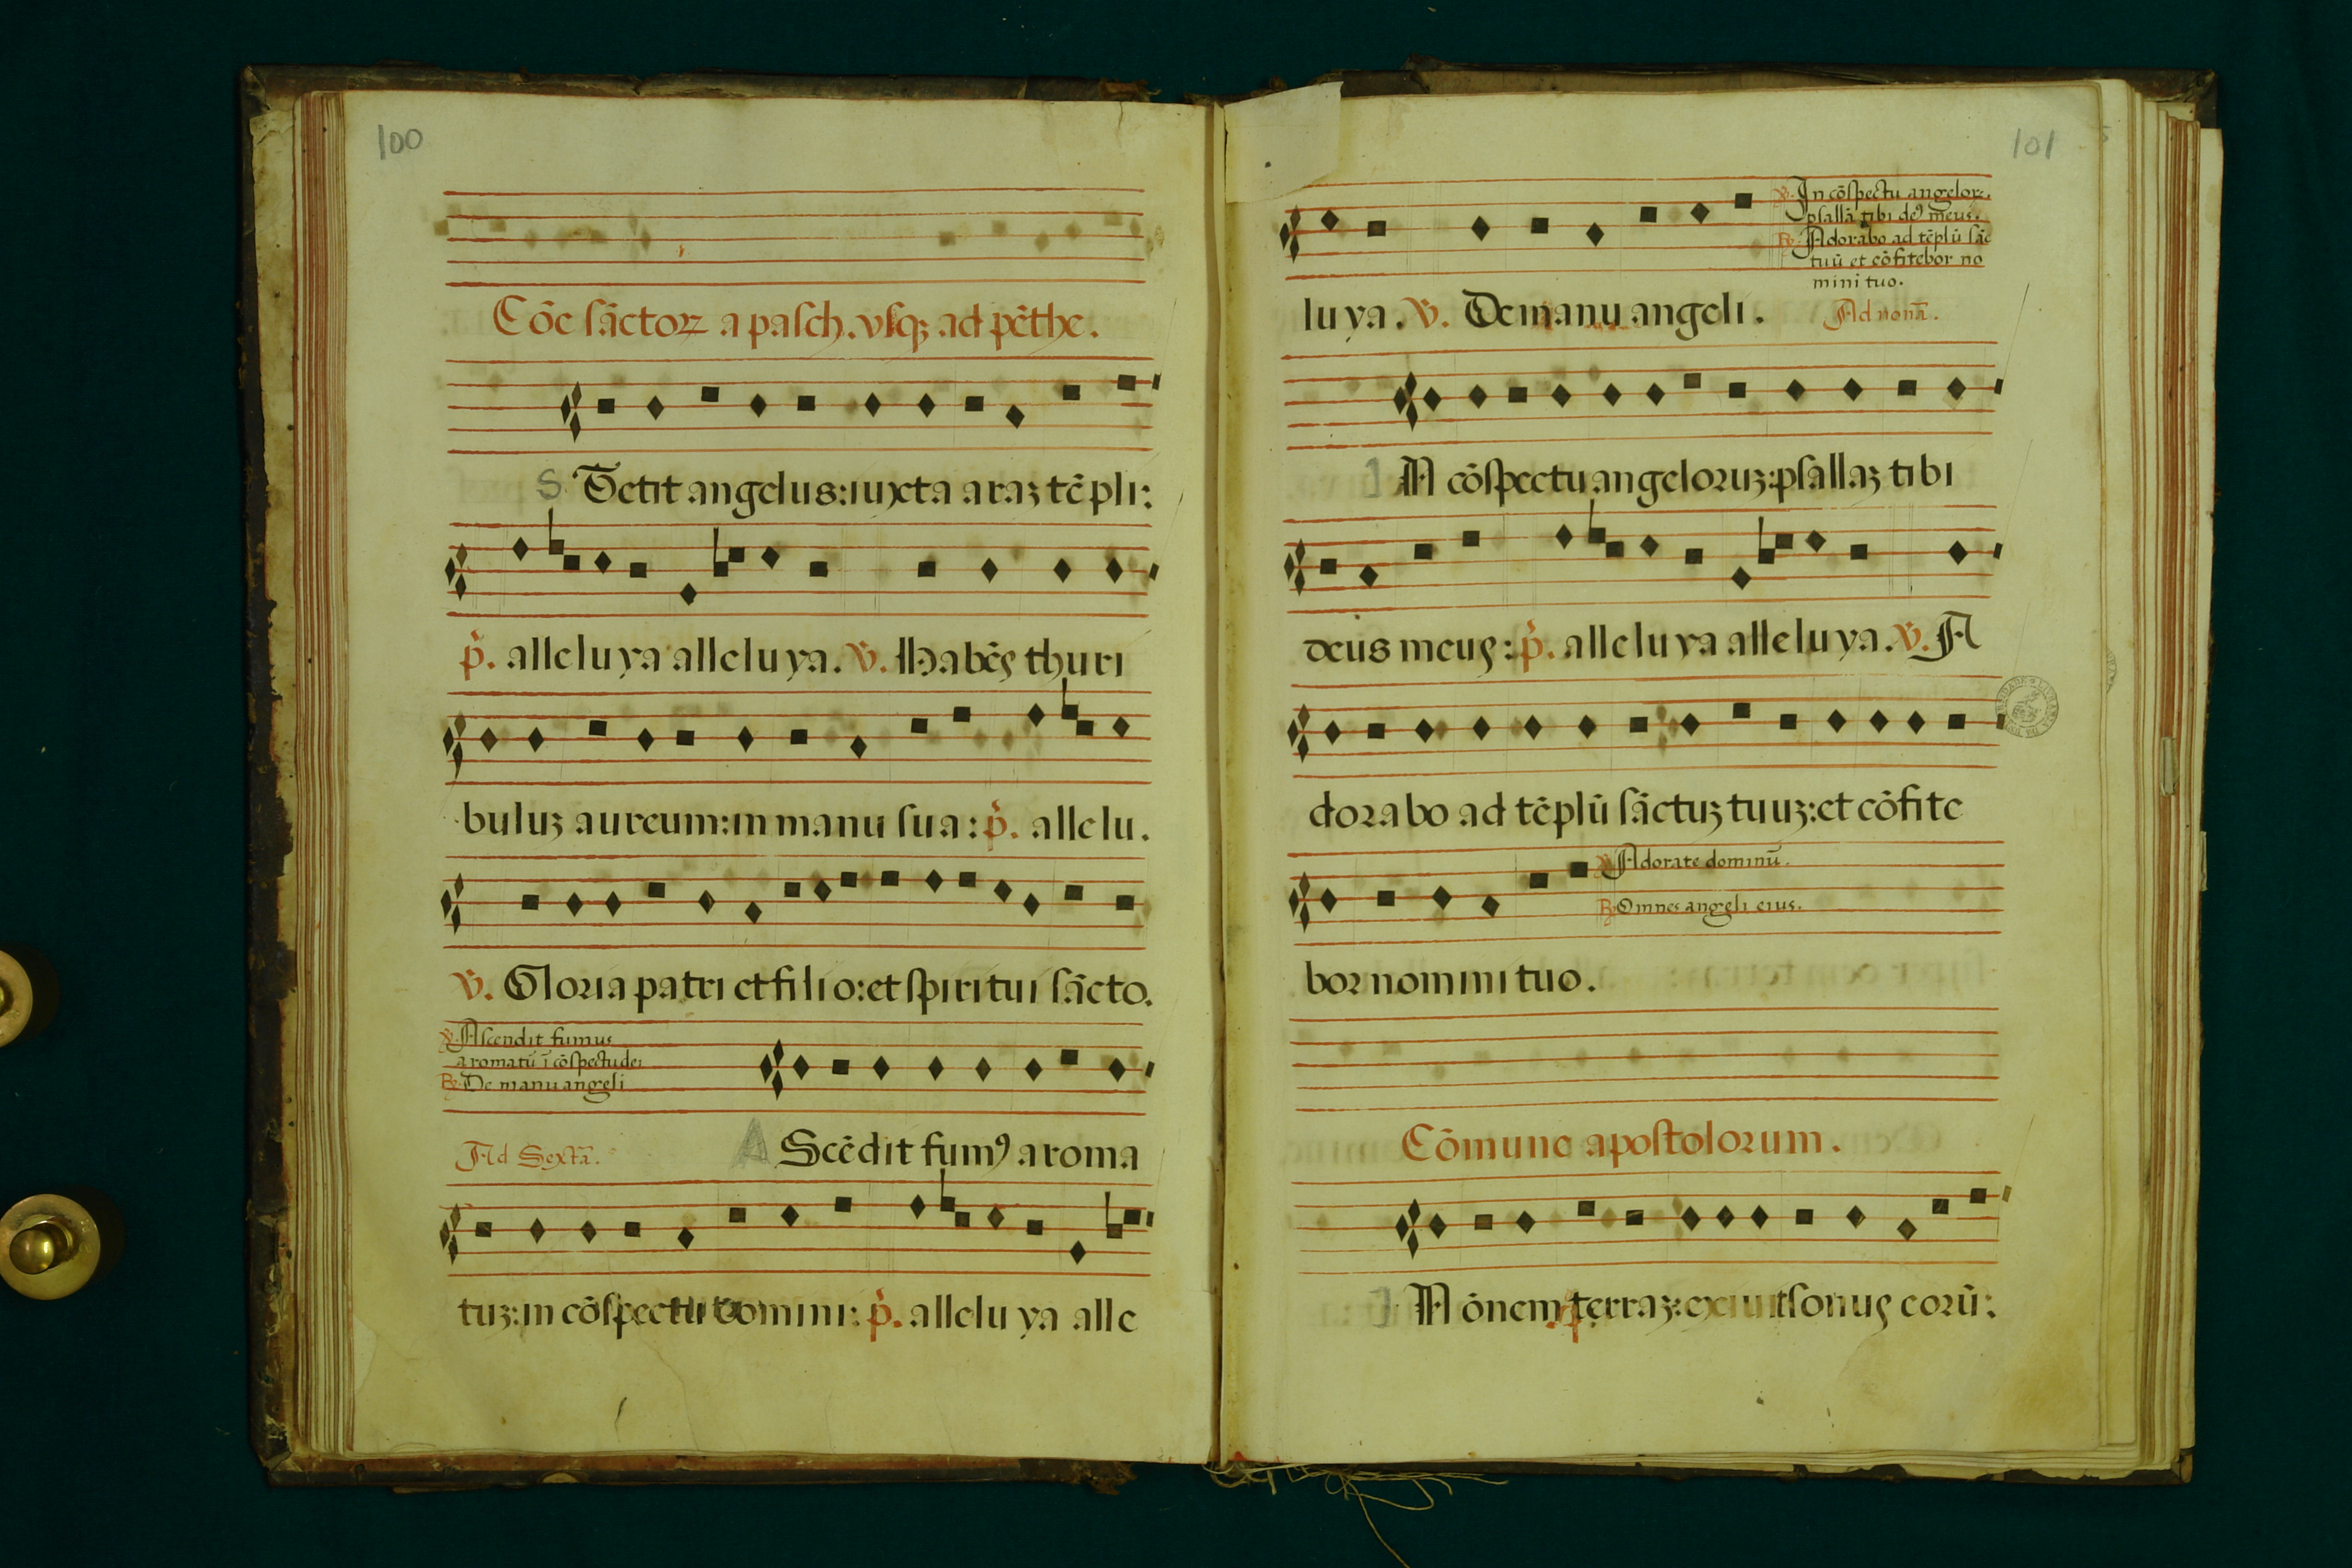 100
Cōe sāctoꝝ a pasch. vsqꝫ ad pēthe.
S Tetit angelus: iuxta araꝫ tēpli:
p̄. alleluya alleluya. ℣. Habēs thuri
buluꝫ aureum: in manu sua: p̄. allelu.
℣. Gloria patri et filio: et spiritui sācto.
℣. Ascendit fumus
aromatū ī cōspectu dei
℟. De manu angeli
Ad Sextā.
A Scēdit fumꝰ aroma
tuꝫ: in cōspectu domini: p̄. alleluya alle
101
℣. In cōspectu angeloꝝ.
psallā tibi deꝰ meus.
℟. Adorabo ad tēplū sāc
tuū et cōfitebor no
mini tuo.
luya. ℣. De manu angeli. Ad nonā.
I N cōspectu angeloruꝫ: psallaꝫ tibi
deus meus: p̄. alleluya alleluya. ℣. A
dorabo ad tēplū sāctuꝫ tuuꝫ: et cōfite
℣. Adorate dominū.
℟. Omnes angeli eius.
bor nomini tuo.
Cōmune apostolorum.
I N ōnem terraꝫ: exiuit sonus eorū: